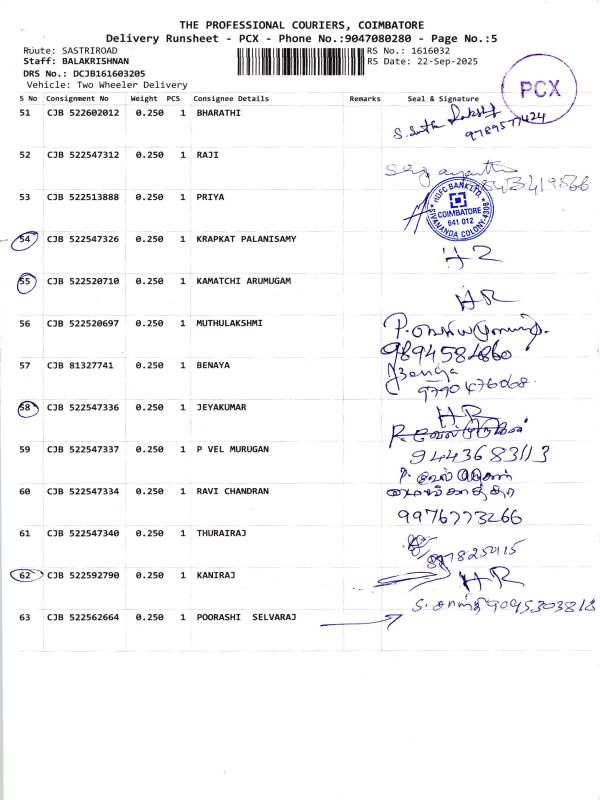 THE PROFESSIONAL COURIERS, COIMBATORE
Delivery Runsheet - PCX - Phone No.:9047080280 - Page No.:5
Route: SASTRIROAD
RS No.: 1616032
Staff: BALAKRISHNAN
RS Date: 22-Sep-2025
DRS No.: DCJB161603205
Vehicle: Two Wheeler Delivery
PCX
S No Consignment No Weight PCS Consignee Details Remarks Seal & Signature
51 CJB 522602012 0.250 1 BHARATHI
9789577424
52 CJB 522547312 0.250 1 RAJI
53 CJB 522513888 0.250 1 PRIYA
HDFC BANK LTD.
COIMBATORE
641 012
SIVANANDA COLONY
54 CJB 522547326 0.250 1 KRAPKAT PALANISAMY
55 CJB 522520710 0.250 1 KAMATCHI ARUMUGAM
HR
56 CJB 522520697 0.250 1 MUTHULAKSHMI
9894584860
57 CJB 81327741 0.250 1 BENAYA
9790476068
58 CJB 522547336 0.250 1 JEYAKUMAR
HR
59 CJB 522547337 0.250 1 P VEL MURUGAN
9443683113
60 CJB 522547334 0.250 1 RAVI CHANDRAN
9976773266
61 CJB 522547340 0.250 1 THURAIRAJ
62 CJB 522592790 0.250 1 KANIRAJ
HR
63 CJB 522562664 0.250 1 POORASHI SELVARAJ